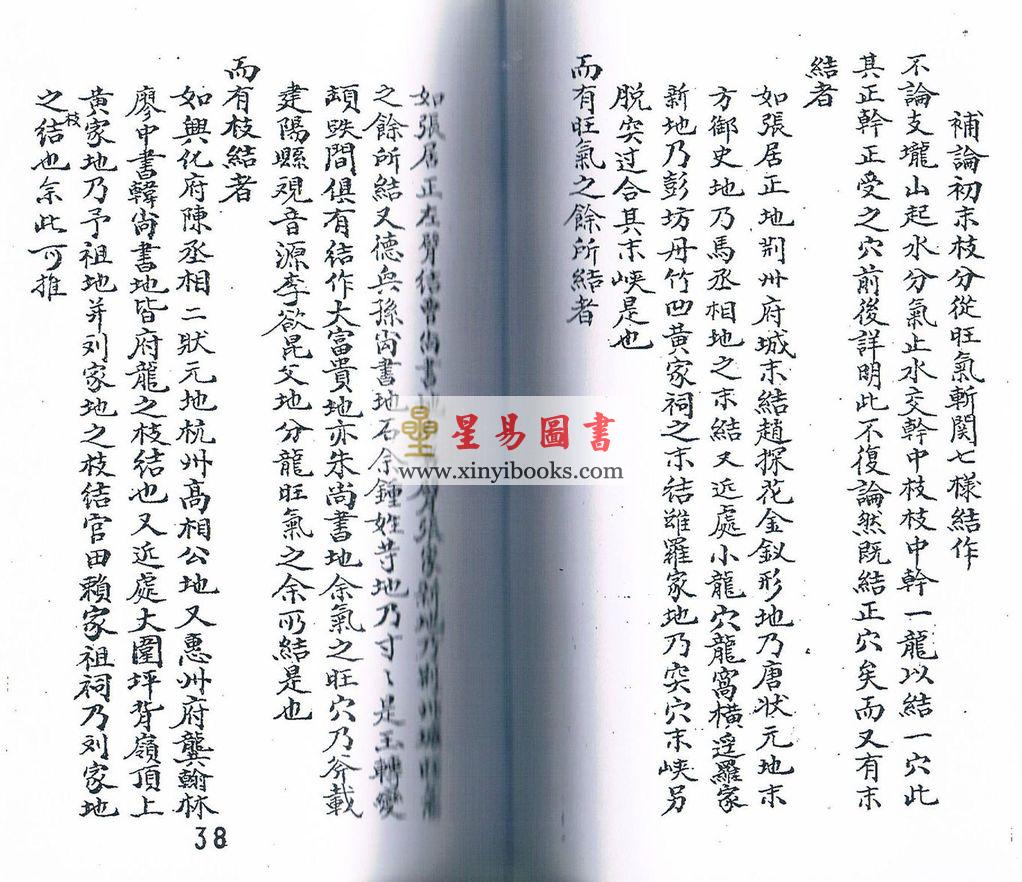 補論初末枝分從旺氣斬関七樣結作
不論支壠山起水分氣止水交幹中枝枝中幹一龍以結一穴此
其正幹正受之穴前後詳明此不復論然既結正穴矣而又有末
結者
如張居正地荆州府城末結趙探花金釵形地乃唐狀元地末
方御史地乃馬丞相地之末結又近處小龍穴龍窩橫逕羅家
新地乃彭坊丹竹凹黄家祠之末结雖羅家地乃突穴末峡另
脱突过合其末峡是也
而有旺氣之餘所結者
如張居正左臂结曹尚書地張家新地乃荆州
之餘所結又德兵孫尚書地石余鍾姓等地乃寸々是玉轉變
頓跌間俱有結作大富貴地亦朱尚書地余氣之旺穴乃斧載
建陽縣观音源李欲昆父地分龍旺氣之余所結是也
而有枝結者
如興化府陳丞相二狀元地杭州高相公地又惠州府龔翰林
廖中書韓尚書地皆府龍之枝结也又近處大圍坪背嶺頂上
黄家地乃予祖地并刘家地之枝結官田賴家祖祠乃刘家地
之枝结也余此可推
38
星易圖書
www.xinyibooks.com